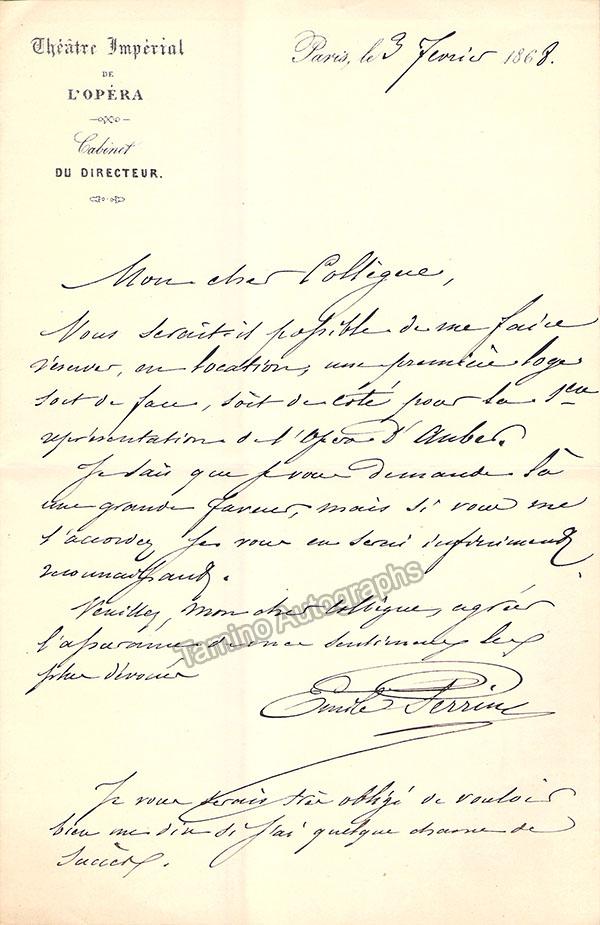 Théâtre Impérial
DE
L'OPÉRA
Cabinet
DU DIRECTEUR.
Paris, le 3 février 1868.
Mon cher Collègue,
Vous serait-il possible de me faire
réserver, en location, une première loge
soit de face, soit de côté pour la 1ère
représentation de l'Opéra d'Auber.
Je sais que je vous demande là
une grande faveur, mais si vous me
l'accordez je vous en serai infiniment
reconnaissant.
Veuillez, mon cher Collègue, agréer
l'assurance de mes sentiments les
plus dévoués
Emile Perrin
Je vous serais très obligé de vouloir
bien me dire si j'ai quelque chance de
succès.
Tamino Autographs